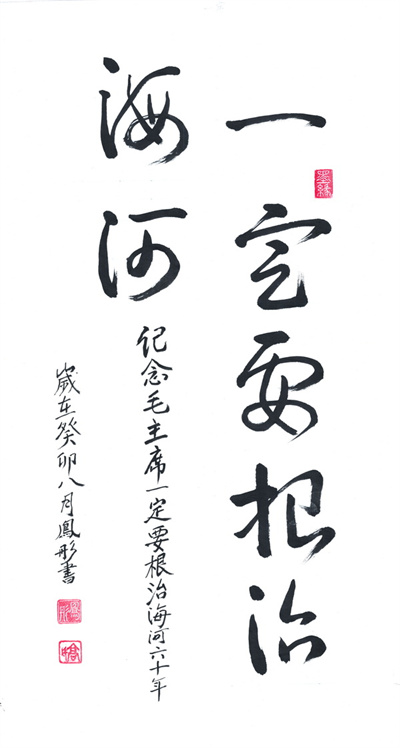 一定要根治
海河
纪念毛主席一定要根治海河六十年
歲在癸卯八月鳳彤書